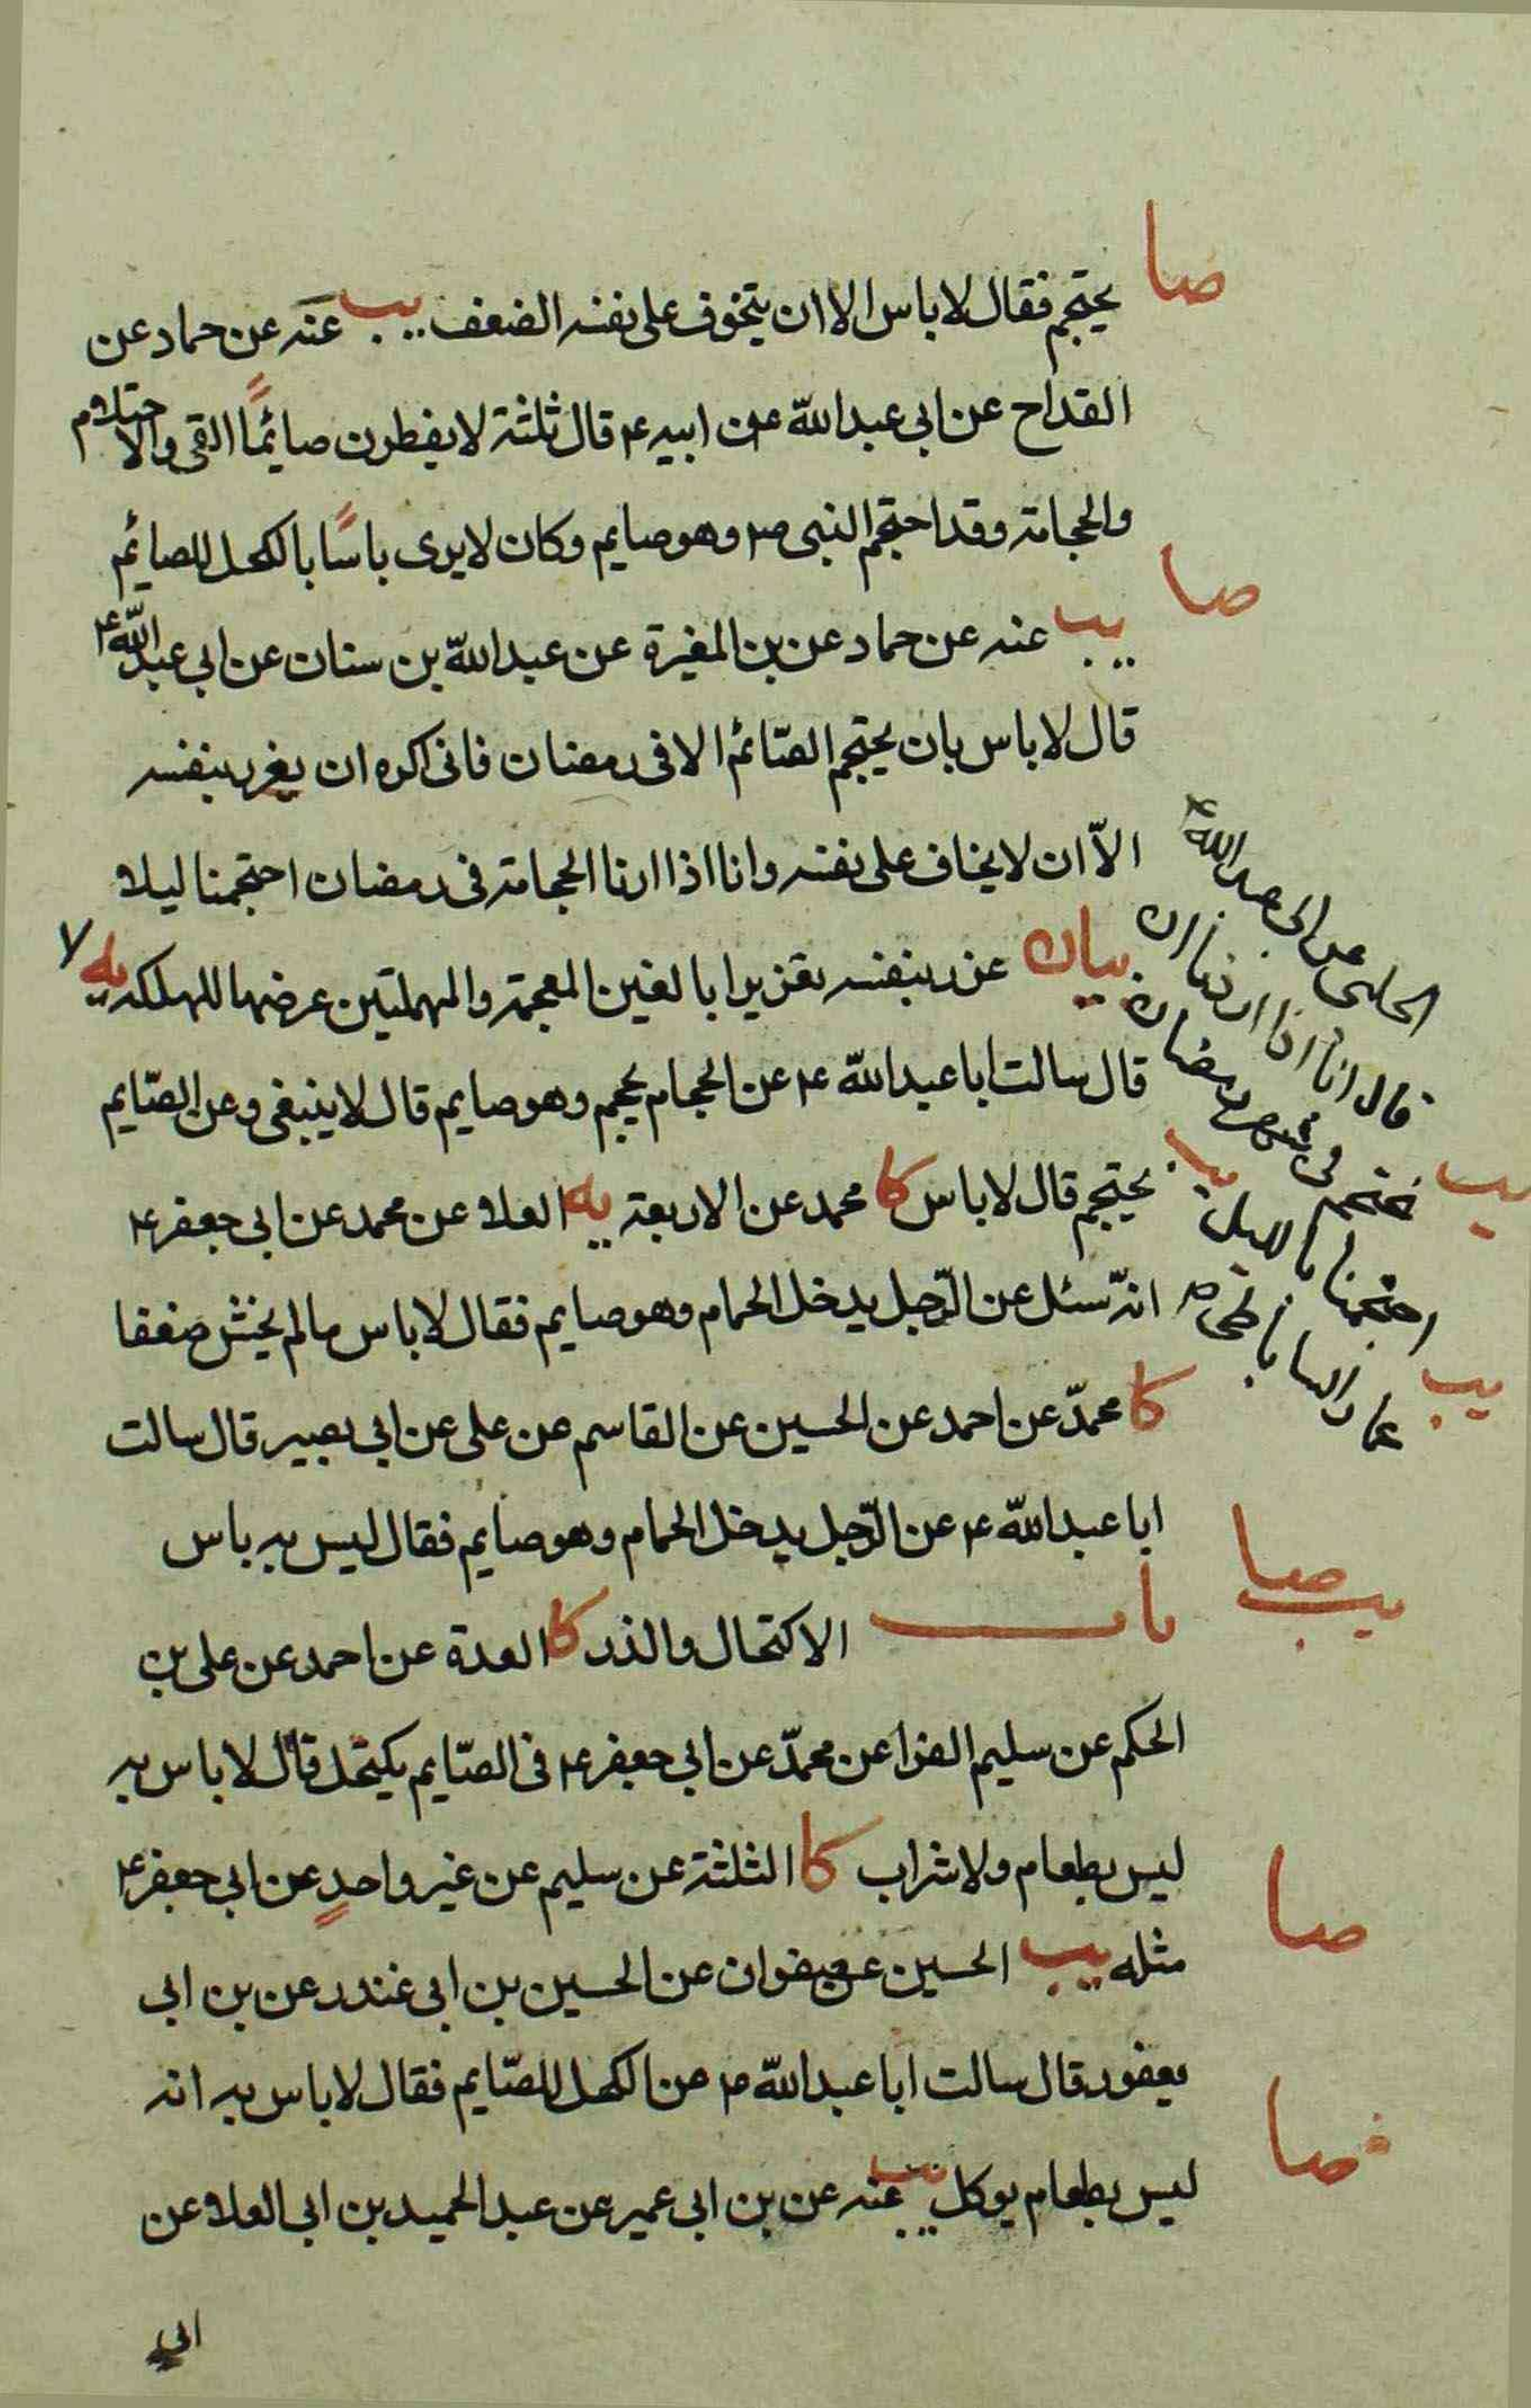 صا
يحتجم فقال لا باس الا ان يتخوف على نفسه الضعف يب عنه عن حماد عن
القداح عن ابى عبد الله عن ابيه ع قال ثلثة لا يفطرون صائمًا القى والاحتلام
والحجامة وقد احتجم النبى ص وهو صايم وكان لا يرى باسًا بالكحل للصائم
صا
يب عنه عن حماد عن بن المغيرة عن عبد الله بن سنان عن ابى عبد الله ع
قال لا باس بان يحتجم الصّائم الا فى رمضان فانى اكره ان يغرر بنفسه
الاّ ان لا يخاف على نفسه وانا اذا اردنا الحجامة فى رمضان احتجمنا ليلا
بيان غرر بنفسه تغريرا بالغين المعجمة والمهملتين عرضها للهلكه يه
قال سالت ابا عبد الله ع عن الحجام يحجم وهو صايم قال لا ينبغى وعن الصّايم
يحتجم قال لا باس كا محمد عن الاربعة يه العلا عن محمد عن ابى جعفر ع
انه سئل عن الرّجل يدخل الحمام وهو صايم فقال لا باس ما لم يخش ضعفا
كا محمّد عن احمد عن الحسين عن القاسم عن على عن ابى بصير قال سالت
ابا عبد الله ع عن الرّجل يدخل الحمام وهو صايم فقال ليس به باس
باب الاكتحال والذر كا العدة عن احمد عن على بن
الحكم عن سليم الفرا عن محمّد عن ابى جعفر ع فى الصّايم يكتحل قال لا باس به
ليس بطعام ولا شراب كا الثلثة عن سليم عن غير واحدٍ عن ابى جعفر ع
مثله يب الحسين عن صفوان عن الحسين بن ابى غندر عن بن ابى
يعفور قال سالت ابا عبد الله ع عن الكحل للصّايم فقال لا باس به انه
ليس بطعام يوكل يب عنه عن بن ابى عمير عن عبد الحميد بن ابى العلا عن
ابى
الحلبى عن ابى عبد الله ع
قال انا اذا اردنا ان
نحتجم فى شهر رمضان
احتجمنا بالليل
يب
عمار الساباطى
يب
صا
يب
صا
صا